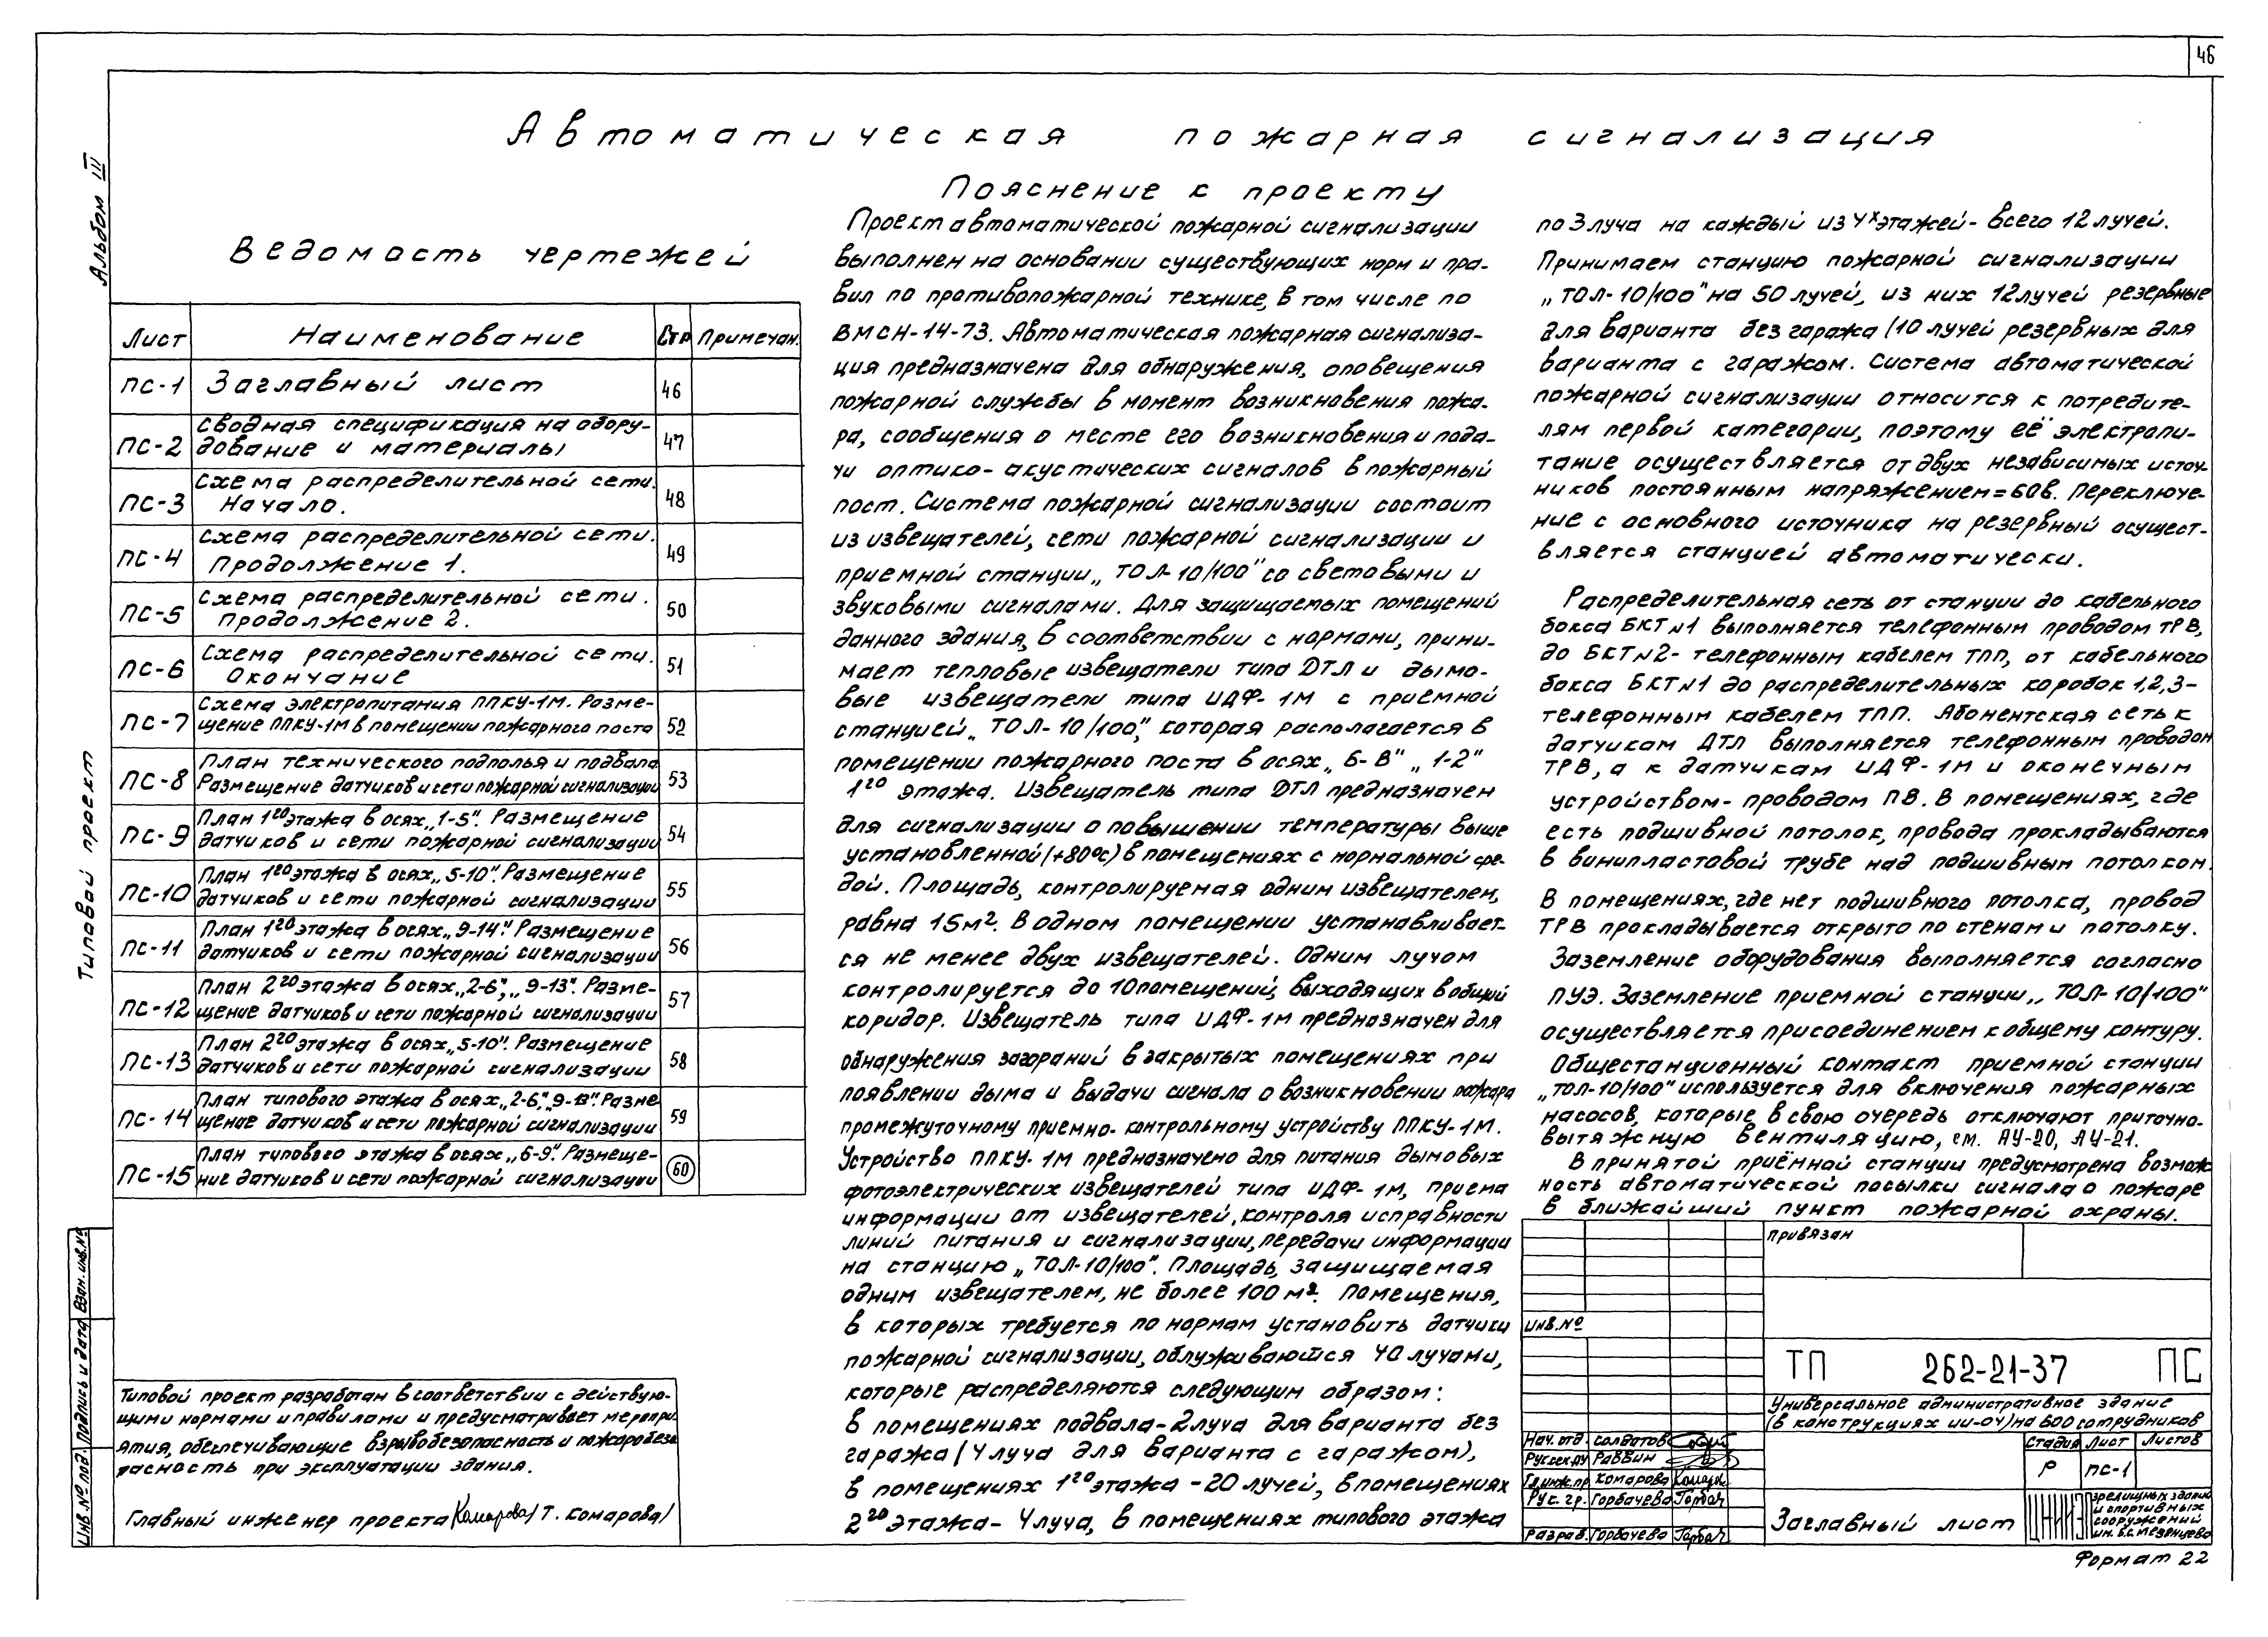 46
Альбом III
Типовой проект
Автоматическая пожарная сигнализация
Ведомость чертежей
Лист Наименование Стр Примечан.
ПС-1 Заглавный лист 46
ПС-2 Сводная спецификация на обору-
дование и материалы 47
ПС-3 Схема распределительной сети.
Начало. 48
ПС-4 Схема распределительной сети.
Продолжение 1. 49
ПС-5 Схема распределительной сети.
Продолжение 2. 50
ПС-6 Схема распределительной сети.
Окончание 51
ПС-7 Схема электропитания ППКУ-1М. Разме-
щение ППКУ-1М в помещении пожарного поста 52
ПС-8 План технического подполья и подвала
Размещение датчиков и сети пожарной сигнализации 53
ПС-9 План 1го этажа в осях „1-5". Размещение
датчиков и сети пожарной сигнализации 54
ПС-10 План 1го этажа в осях „5-10". Размещение
датчиков и сети пожарной сигнализации 55
ПС-11 План 1го этажа в осях „9-14". Размещение
датчиков и сети пожарной сигнализации 56
ПС-12 План 2го этажа в осях „2-6", „9-13". Разме-
щение датчиков и сети пожарной сигнализации 57
ПС-13 План 2го этажа в осях „5-10". Размещение
датчиков и сети пожарной сигнализации 58
ПС-14 План типового этажа в осях „2-6", „9-13". Разме
щение датчиков и сети пожарной сигнализации 59
ПС-15 План типового этажа в осях „6-9". Размеще-
ние датчиков и сети пожарной сигнализации 60
Типовой проект разработан в соответствии с действую-
щими нормами и правилами и предусматривает меропри-
ятия, обеспечивающие взрывобезопасность и пожаробезо
пасность при эксплуатации здания.
Главный инженер проекта Комарова /Т. Комарова/
Пояснение к проекту
Проект автоматической пожарной сигнализации
выполнен на основании существующих норм и пра-
вил по противопожарной технике, в том числе по
ВМСН-14-73. Автоматическая пожарная сигнализа-
ция предназначена для обнаружения, оповещения
пожарной службы в момент возникновения пожа-
ра, сообщения о месте его возникновения и пода-
чи оптико-акустических сигналов в пожарный
пост. Система пожарной сигнализации состоит
из извещателей, сети пожарной сигнализации и
приемной станции „ТОЛ-10/100" со световыми и
звуковыми сигналами. Для защищаемых помещений
данного здания, в соответствии с нормами, прини-
мает тепловые извещатели типа ДТЛ и дымо-
вые извещатели типа ИДФ-1М с приемной
станцией „ТОЛ-10/100", которая располагается в
помещении пожарного поста в осях „Б-В" „1-2"
1го этажа. Извещатель типа ДТЛ предназначен
для сигнализации о повышении температуры выше
установленной (+80°С) в помещениях с нормальной сре-
дой. Площадь, контролируемая одним извещателем,
равна 15м². В одном помещении устанавливает-
ся не менее двух извещателей. Одним лучом
контролируется до 10 помещений, выходящих в общий
коридор. Извещатель типа ИДФ-1М предназначен для
обнаружения загораний в закрытых помещениях при
появлении дыма и выдачи сигнала о возникновении пожара
промежуточному приемно-контрольному устройству ППКУ-1М.
Устройство ППКУ-1М предназначено для питания дымовых
фотоэлектрических извещателей типа ИДФ-1М, приема
информации от извещателей, контроля исправности
линий питания и сигнализации, передачи информации
на станцию „ТОЛ-10/100". Площадь, защищаемая
одним извещателем, не более 100 м². Помещения,
в которых требуется по нормам установить датчики
пожарной сигнализации, облуживаются 40 лучами,
которые распределяются следующим образом:
в помещениях подвала-2луча для варианта без
гаража (4луча для варианта с гаражом),
в помещениях 1го этажа -20 лучей, в помещениях
2го этажа- 4луча, в помещениях типового этажа
по 3 луча на каждый из 4х этажей- всего 12 лучей.
Принимаем станцию пожарной сигнализации
„ТОЛ-10/100" на 50 лучей, из них 12лучей резервные
для варианта без гаража (10 лучей резервных для
варианта с гаражом. Система автоматической
пожарной сигнализации относится к потребите-
лям первой категории, поэтому её электропи-
тание осуществляется от двух независимых источ-
ников постоянным напряжением=60в. Переключе-
ние с основного источника на резервный осущест-
вляется станцией автоматически.
Распределительная сеть от станции до кабельного
бокса БКТ №1 выполняется телефонным проводом ТРВ,
до БКТ №2- телефонным кабелем ТПП, от кабельного
бокса БКТ №1 до распределительных коробок 1,2,3-
телефонным кабелем ТПП. Абонентская сеть к
датчикам ДТЛ выполняется телефонным проводом
ТРВ, а к датчикам ИДФ-1М и оконечным
устройством-проводом ПВ. В помещениях, где
есть подшивной потолок, провода прокладываются
в винипластовой трубе над подшивным потолком.
В помещениях, где нет подшивного потолка, провод
ТРВ прокладывается открыто по стенам и потолку.
Заземление оборудования выполняется согласно
ПУЭ. Заземление приемной станции „ТОЛ-10/100"
осуществляется присоединением к общему контуру.
Общестанционный контакт приемной станции
„ТОЛ-10/100" используется для включения пожарных
насосов, которые в свою очередь отключают приточно-
вытяжную вентиляцию, см. АУ-20, АУ-21.
В принятой приёмной станции предусмотрена возмож
ность автоматической посылки сигнала о пожаре
в ближайший пункт пожарной охраны.
привязан
инв.№
ТП 262-21-37 ПС
Универсальное административное здание
(в конструкциях ИИ-04) на 600 сотрудников
Нач. отд. Солдатов
Рук.сек.ду Раввин
Гл.инж.пр Комарова Комаров
Рук. гр. Горбачева Горбач
Разраб. Горбачева Горбач
Стадия Лист Листов
Р ПС-1
Заглавный лист
ЦНИИЭП зрелищных зданий
и спортивных
сооружений
им. Б.С. Мезенцева
Формат 22
Инв.№ под. Подпись и дата Взам.инв.№